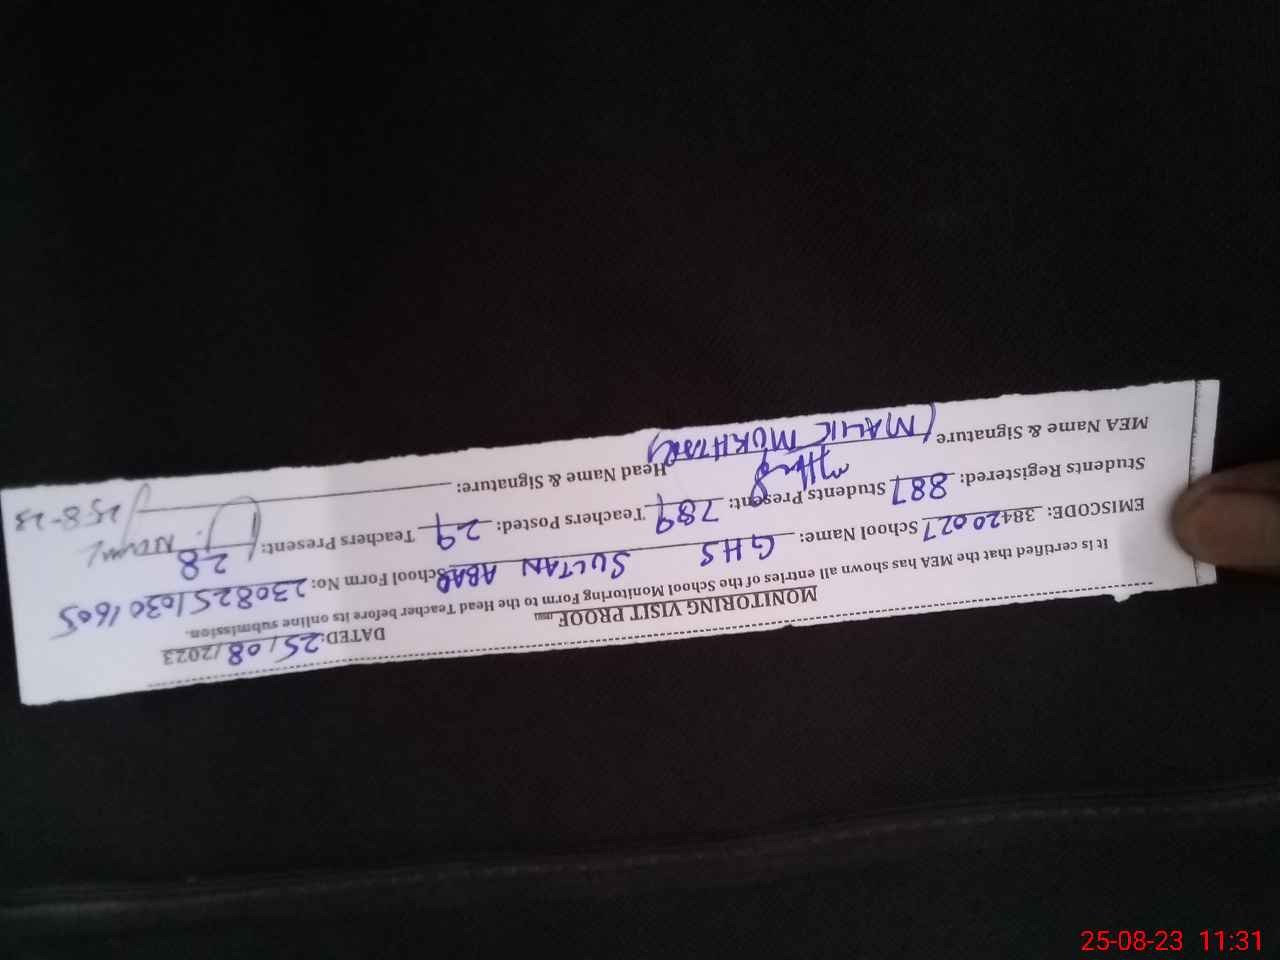 MONITORING VISIT PROOF
DATED: 25/08/2023
It is certified that the MEA has shown all entries of the School Monitoring Form to the Head Teacher before its online submission.
EMISCODE: 38420027 School Name: GHS SULTAN ABAD School Form No: 23082510301605
Students Registered: 887 Students Present: 789 Teachers Posted: 29 Teachers Present: 28
MEA Name & Signature (MALIK MUKHTAR) Head Name & Signature:
25-8-23
25-08-23 11:31